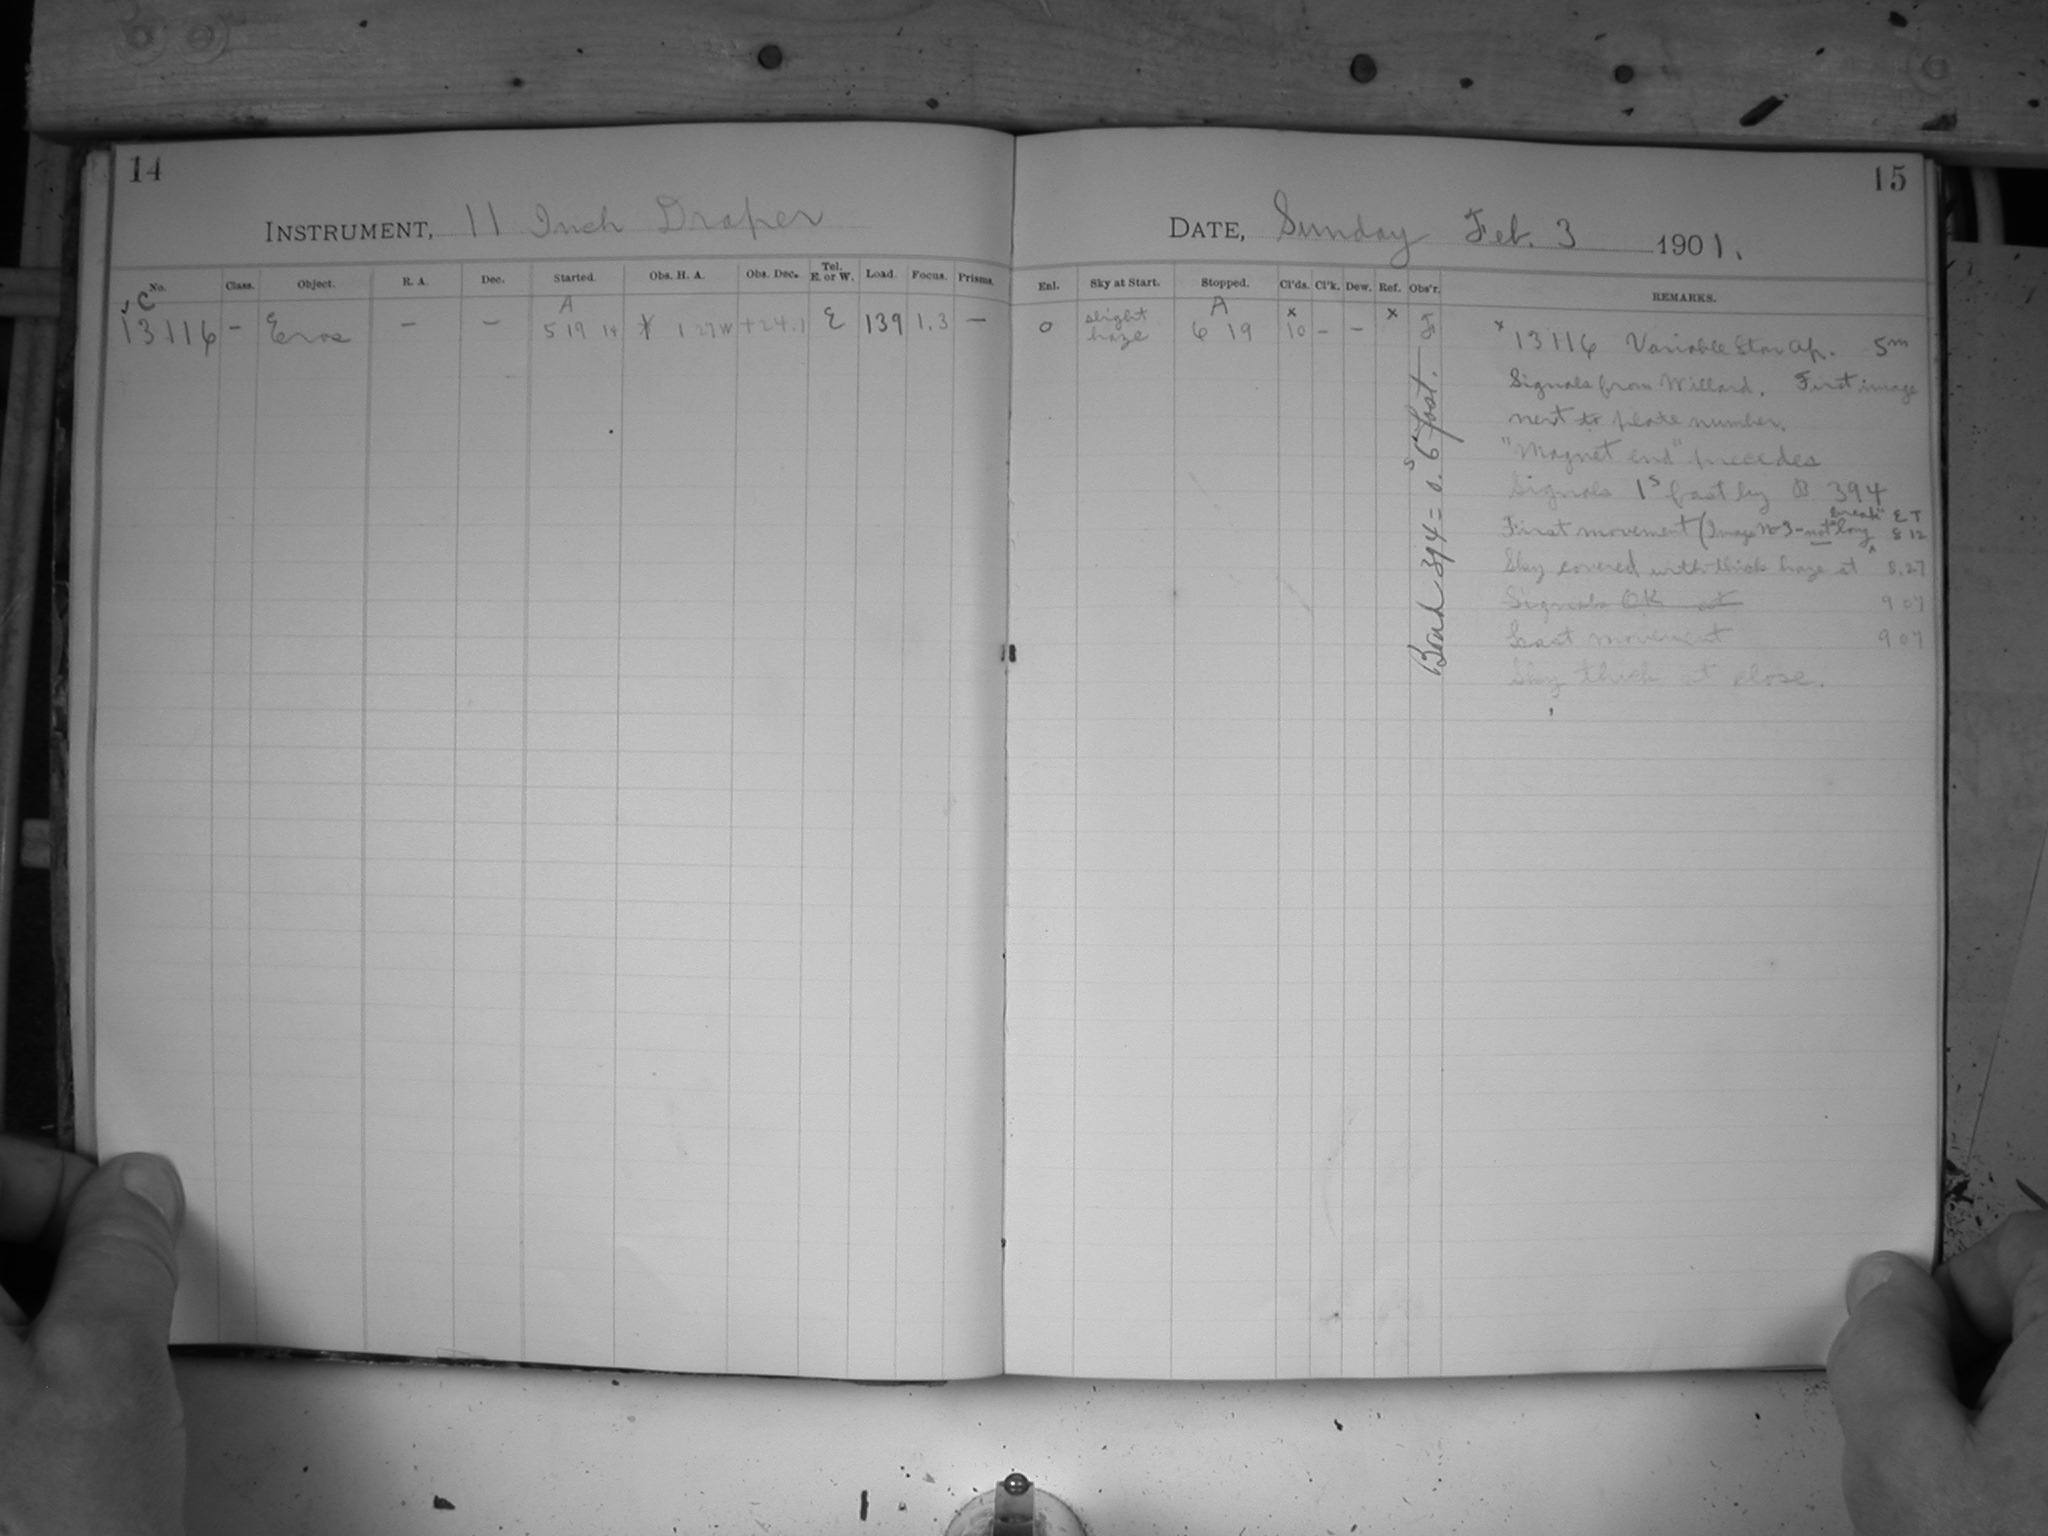 14
INSTRUMENT, 11 Inch Draper
No. Class. Object. R. A. Dec. Started. Obs. H. A. Obs. Dec. Tel. E. or W. Load. Focus. Prisms.
C A
13116 - Eros - - 5 19 14 1 27 W +24.1 E 139 1.3 -
15
DATE, Sunday Feb. 3 1901.
Enl. Sky at Start. Stopped. Cl'ds. Cl'k. Dew. Ref. Obs'r. REMARKS.
A x x
0 slight haze 6 19 10 - - F
Bond 394 = 0.6s fast.
x 13116 Variable Star Ap. 5m
Signals from Willard. First image
next to plate number.
"Magnet end" precedes
Signals 1s fast by B 394
First movement (Image No 3 - not "long break" E T 8 12
Sky covered with thick haze at 8.27
Signals OK at 9 07
Last movement 9 07
Sky thick at close.